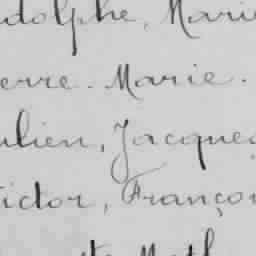 dolphe, Marie
erre. Marie.
ulien, Jacques
ictor, François